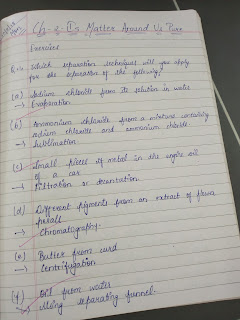 Ch-2 Is Matter Around Us Pure
Exercises
Q.1→ Which separation techniques will you apply
for the separation of the following?
(a) Sodium chloride from its solution in water
→ Evaporation
(b) Ammonium chloride from a mixture containing
sodium chloride and ammonium chloride
→ Sublimation
(c) Small pieces of metal in the engine oil
of a car
→ Filtration or decantation
(d) Different pigments from an extract of flower
petals
→ Chromatography.
(e) Butter from curd
→ Centrifugation
(f) Oil from water
→ Using separating funnel.